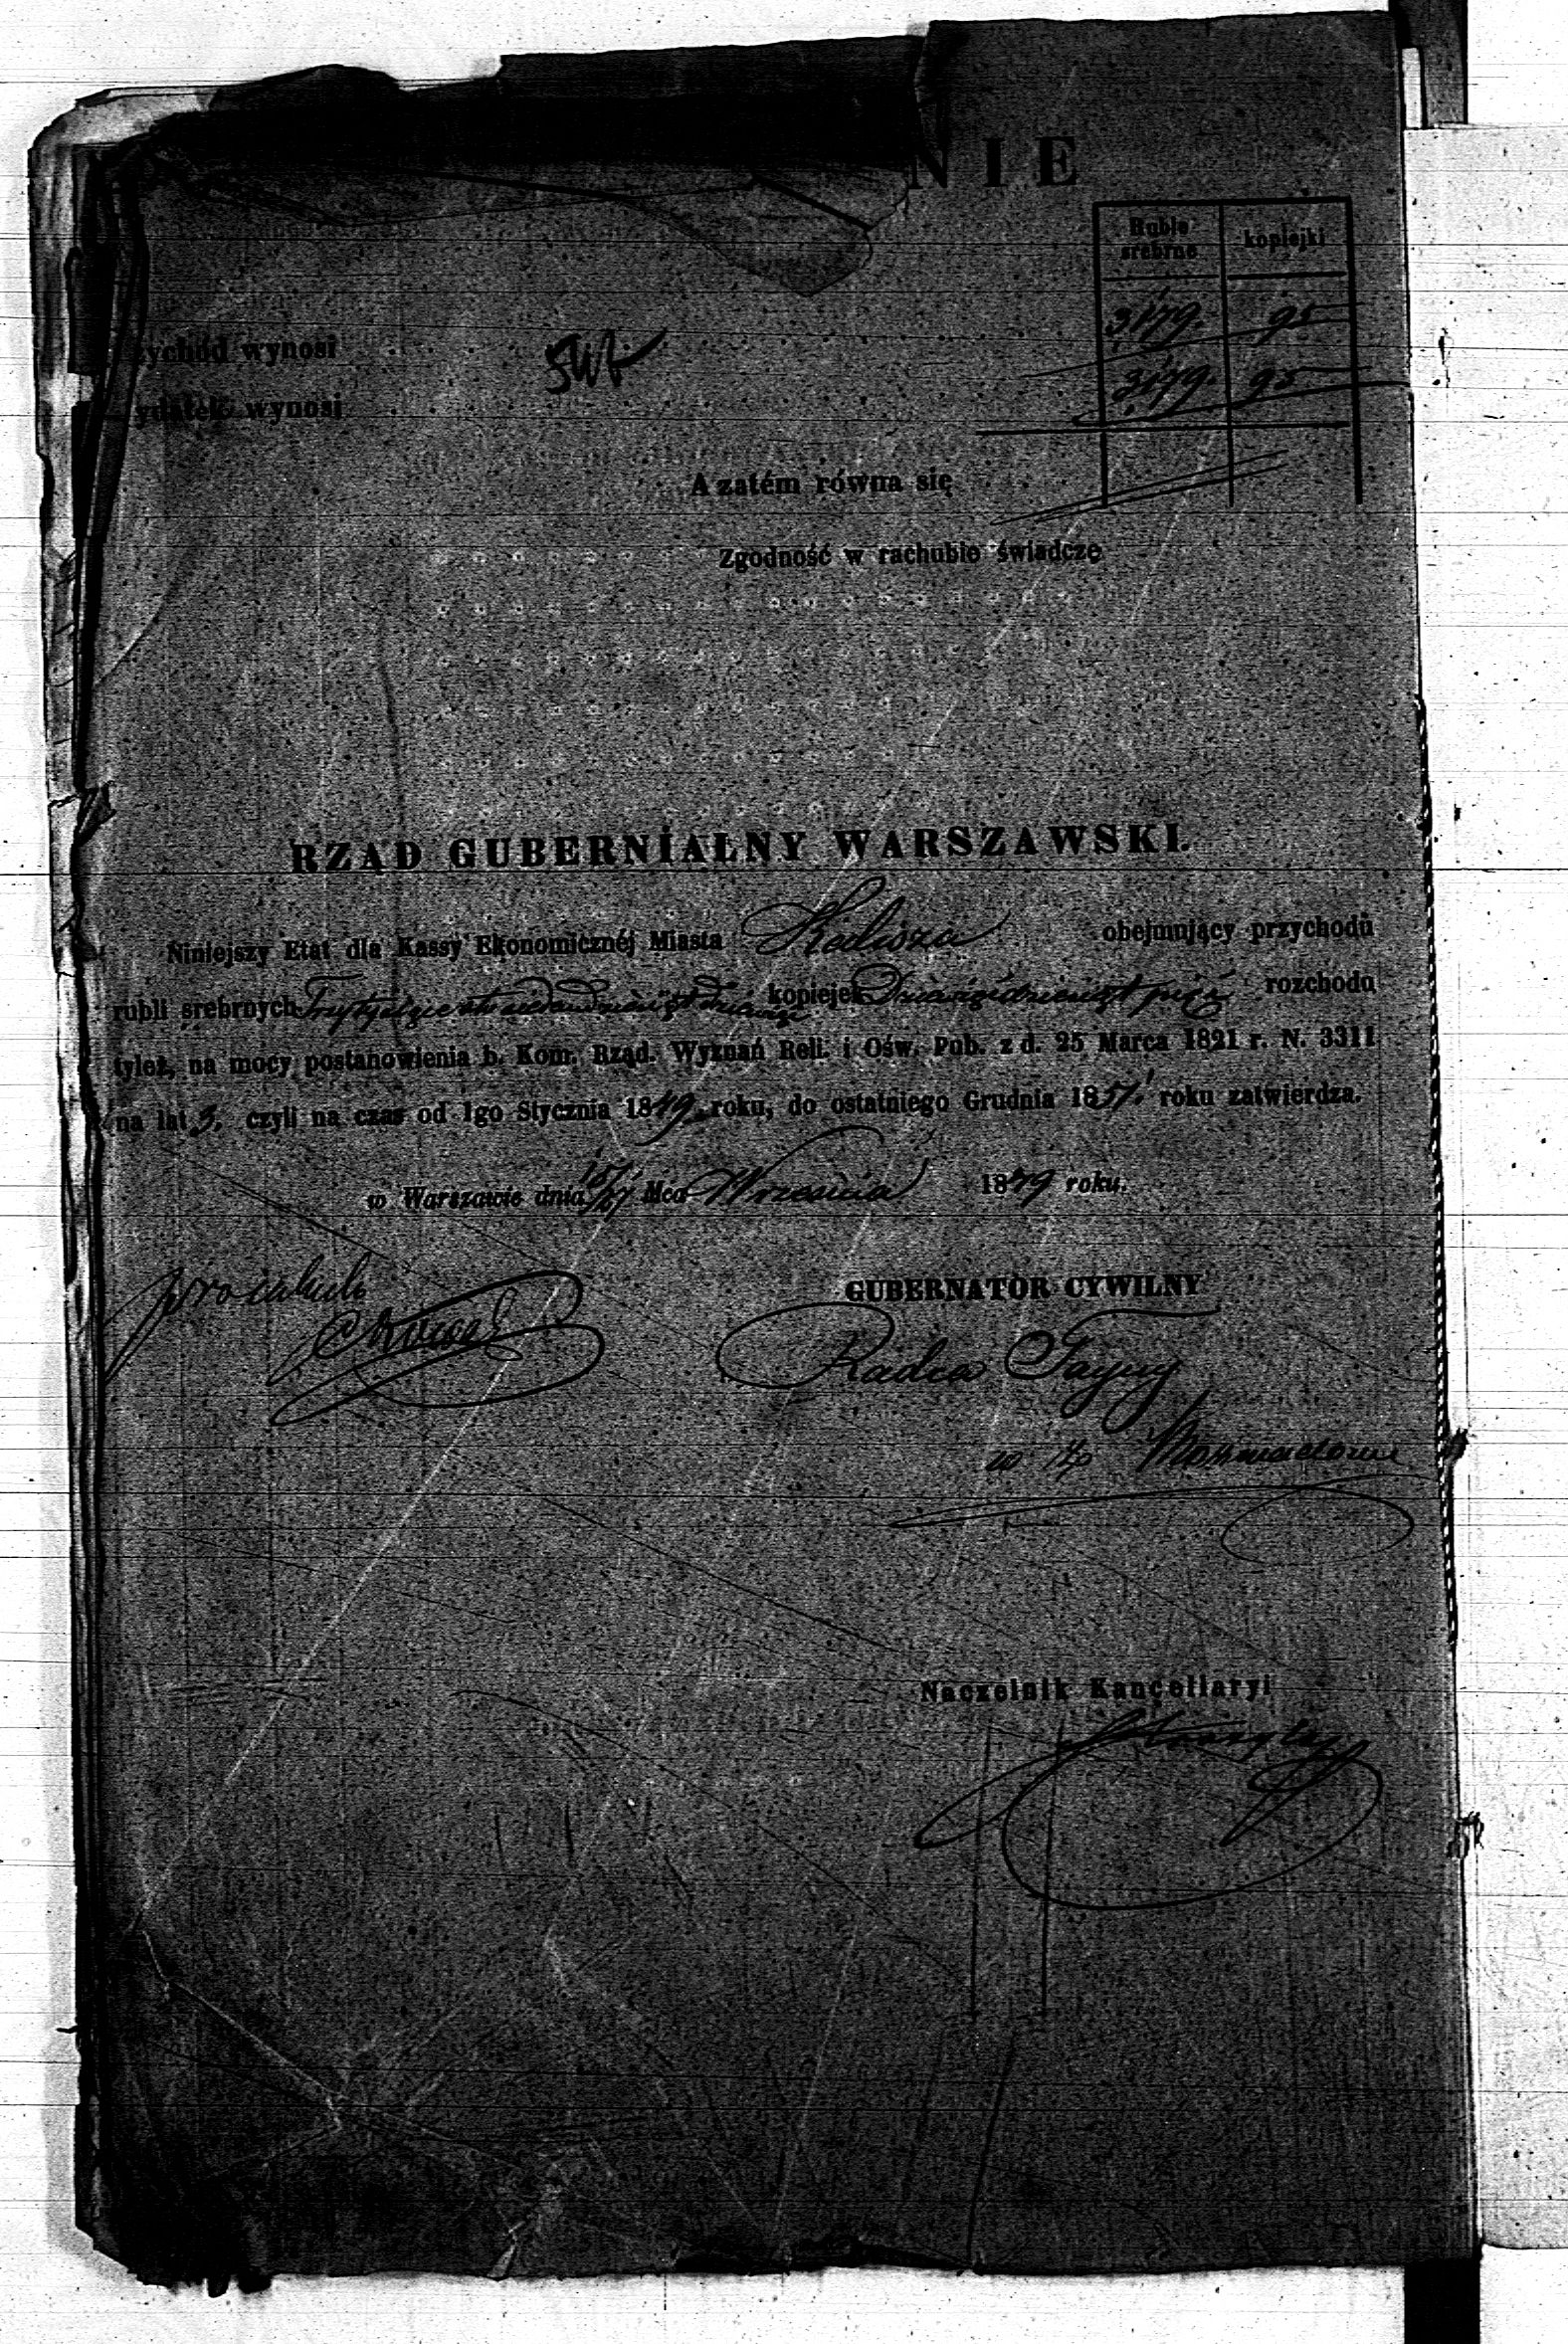 NIE
Rubie srebrne kopiejki
zychód wynosi 3179. 95
ydatek wynosi 3179. 95
A zatém równa się
Zgodność w rachubie świadczę
RZĄD GUBERNIALNY WARSZAWSKI.
Niniejszy Etat dla Kassy Ekonomicznéj Miasta Kalisza obejmujący przychodu
rubli srebrnych Trzy tysiące sto siedemdziesiąt dziewięć kopiejek Dziewięćdziesiąt pięć rozchodu
tyleż, na mocy postanowienia b. Kom. Rząd. Wyznań Reli. i Ośw. Pub. z d. 25 Marca 1821 r. N. 3311
na lat 3. czyli na czas od 1go Stycznia 1849 roku, do ostatniego Grudnia 1851. roku zatwierdza.
w Warszawie dnia 15/27 Mca Września 1849 roku.
GUBERNATOR CYWILNY
Radca Tayny
Naczelnik Kancellaryi